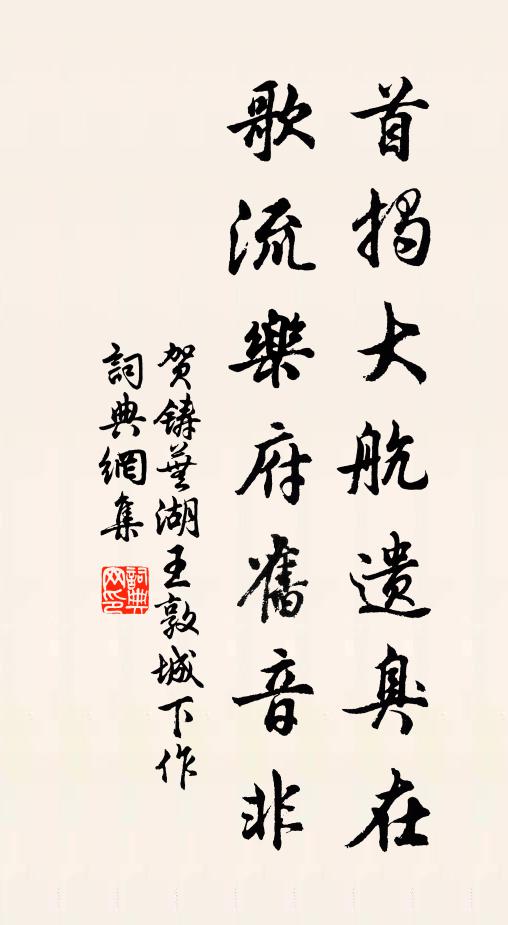 首揭大航遗臭在
歌流樂府舊音非
贺鑄蕪湖王敦城下作
詞典網集
詞典網印